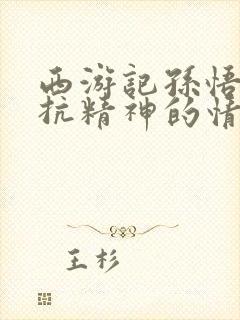 西游記孫悟
抗精神的情
王杉